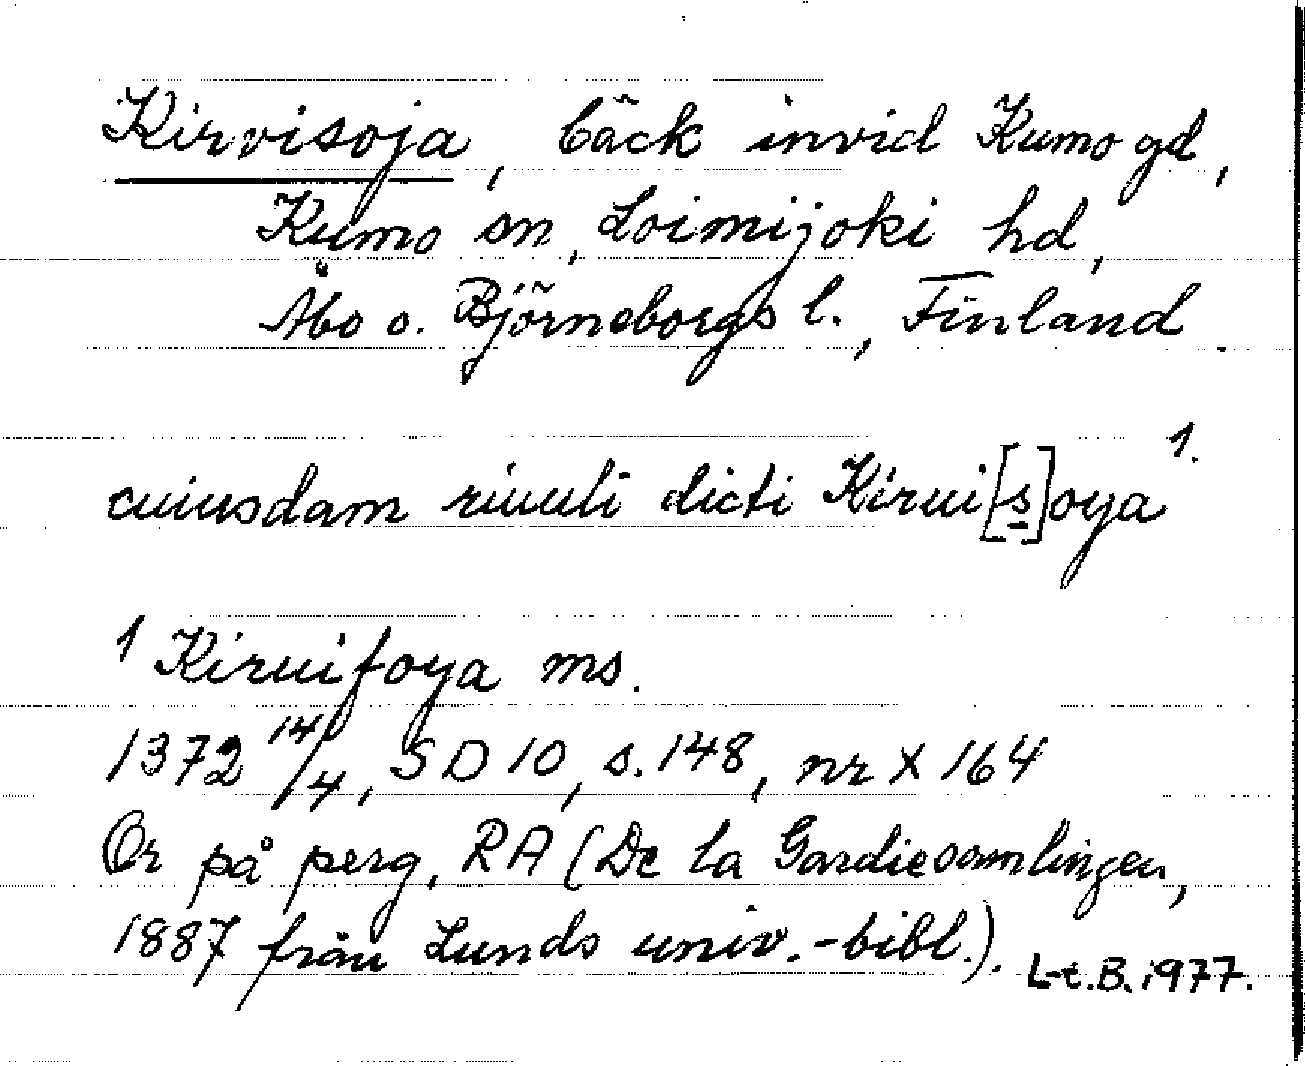 Kirvisoja, bäck invid Kumo gd,
Kumo sn, Loimijoki hd,
Åbo o. Björneborgs l., Finland.
cuiusdam riuuli dicti Kirui[s]oya 1.
1 Kiruifoya ms.
1372 14/4, SD 10, s. 148, nr X 164
Or på perg, RA (De la Gardiesamlingen,
1887 från Lunds univ.-bibl.). L-t.B. 1977.